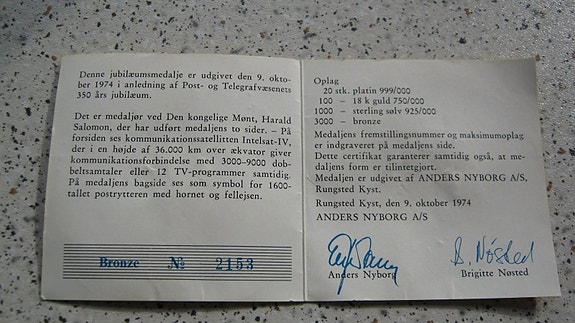 Denne jubilæumsmedalje er udgivet den 9. okto-
ber 1974 i anledning af Post- og Telegrafvæsenets
350 års jubilæum.
Det er medaljør ved Den kongelige Mønt, Harald
Salomon, der har udført medaljens to sider. – På
forsiden ses kommunikationssatellitten Intelsat-IV,
der i en højde af 36.000 km over ækvator giver
kommunikationsforbindelse med 3000–9000 dob-
beltsamtaler eller 12 TV-programmer samtidig.
På medaljens bagside ses som symbol for 1600-
tallet postrytteren med hornet og fellejsen.
Bronze № 2153
Oplag
20 stk. platin 999/000
100 – 18 k guld 750/000
1000 – sterling sølv 925/000
3000 – bronze
Medaljens fremstillingsnummer og maksimumoplag
er indgraveret på medaljens side.
Dette certifikat garanterer samtidig også, at me-
daljens form er tilintetgjort.
Medaljen er udgivet af ANDERS NYBORG A/S,
Rungsted Kyst.
Rungsted Kyst, den 9. oktober 1974
ANDERS NYBORG A/S
B. Nøsted
Anders Nyborg
Brigitte Nøsted